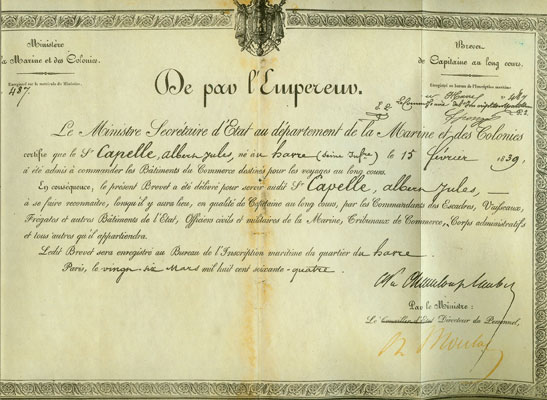 Ministère
de la Marine et des Colonies.
Enregistré au matricule du Ministère.
487
Brevet
de Capitaine au long cours.
Enregistré au bureau de l'Inscription maritime
Havre 487
De par l'Empereur.
Le Ministre Secrétaire d'Etat au département de la Marine et des Colonies
certifie que le Sr Capelle, albert Jules, né au havre (Seine Infre) le 15 février 1839,
a été admis à commander les Bâtiments du Commerce destinés pour les voyages au long cours.
En conséquence, le présent Brevet a été délivré pour servir audit Sr Capelle, albert Jules,
à se faire reconnaître, lorsqu'il y aura lieu, en qualité de Capitaine au long cours, par les Commandants des Escadres, Vaisseaux,
Frégates et autres Bâtiments de l'Etat, Officiers civils et militaires de la Marine, Tribunaux de Commerce, Corps administratifs
et tous autres qu'il appartiendra.
Ledit Brevet sera enregistré au Bureau de l'Inscription maritime du quartier du havre
Paris, le vingt six Mars mil huit cent soixante-quatre.
Chasseloup Laubat
Par le Ministre:
Le Conseiller d'Etat Directeur du Personnel,